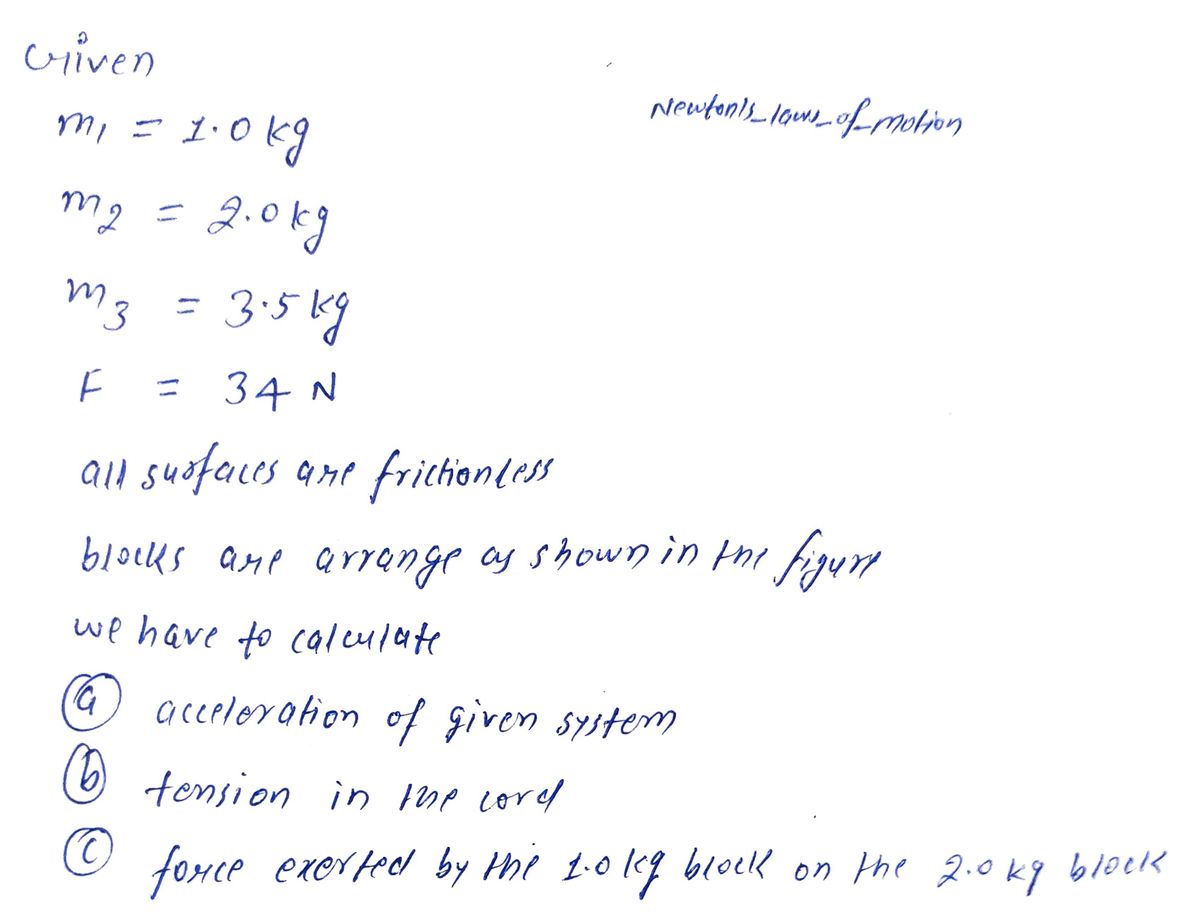 Given
Newton's_laws_of_motion
m1 = 1.0 kg
m2 = 2.0 kg
m3 = 3.5 kg
F = 34 N
all surfaces are frictionless
blocks are arrange as shown in the figure
we have to calculate
(a) acceleration of given system
(b) tension in the cord
(c) force exerted by the 1.0 kg block on the 2.0 kg block